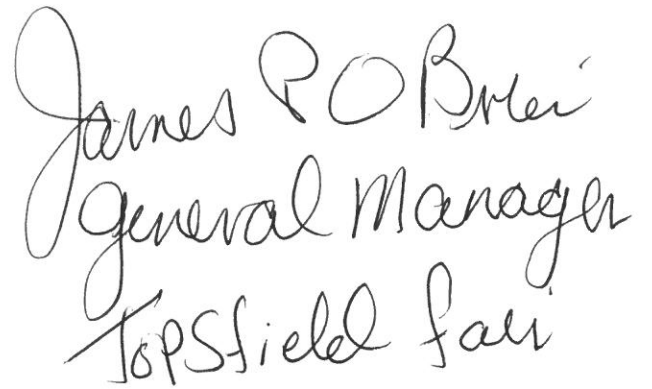 James P O Brien
General Manager
Topsfield Fair